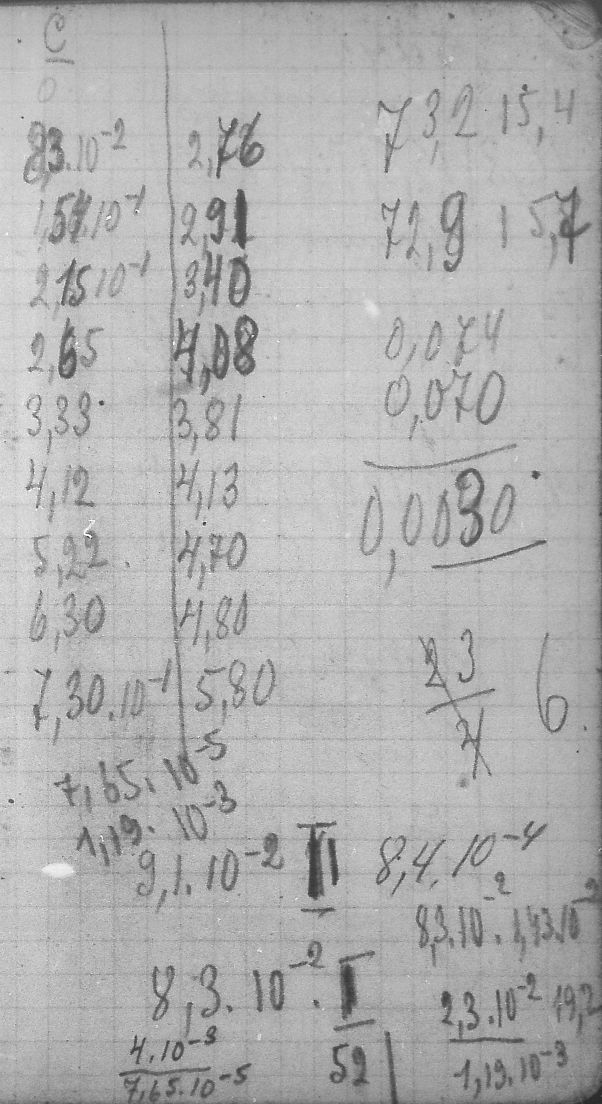 C
0
8,3.10⁻² 2,76
1,51.10⁻¹ 2,91
2,15 10⁻¹ 3,40
2,65 4,08
3,33 3,81
4,12 4,13
5,22 4,70
6,30 4,80
7,30.10⁻¹ 5,80
7,65.10⁻⁵
1,19.10⁻³
9,1.10⁻² II
8,3.10⁻². I
4.10⁻³
7,65.10⁻⁵
52
73,2 15,4
72,9 15,7
0,074
0,070
0,0030
23
4
6.
8,4.10⁻⁴
8,3.10⁻². 1,43.10⁻²
2,3.10⁻² 19,2
1,19.10⁻³